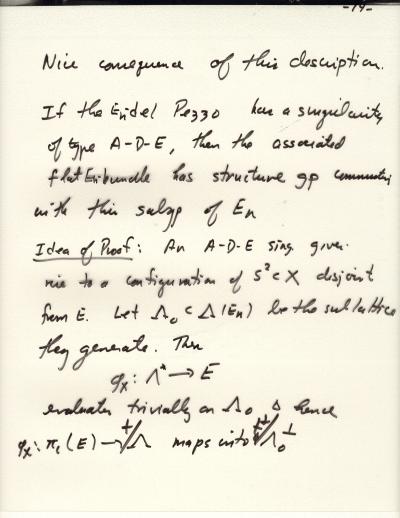 -14-
Nice consequence of this description.
If the En del Pezzo has a singularity
of type A-D-E, then the associated
flat En-bundle has structure gp commuting
with this subgp of En
Idea of Proof: An A-D-E sing. gives
rise to a configuration of S² ⊂ X disjoint
from E. Let Λ₀ ⊂ Λ(En) be the sublattice
they generate. Then
φₓ: Λ* → E
evaluates trivially on Λ₀ & hence
φₓ: π₁(E) → Λ maps into Λ₀^⊥